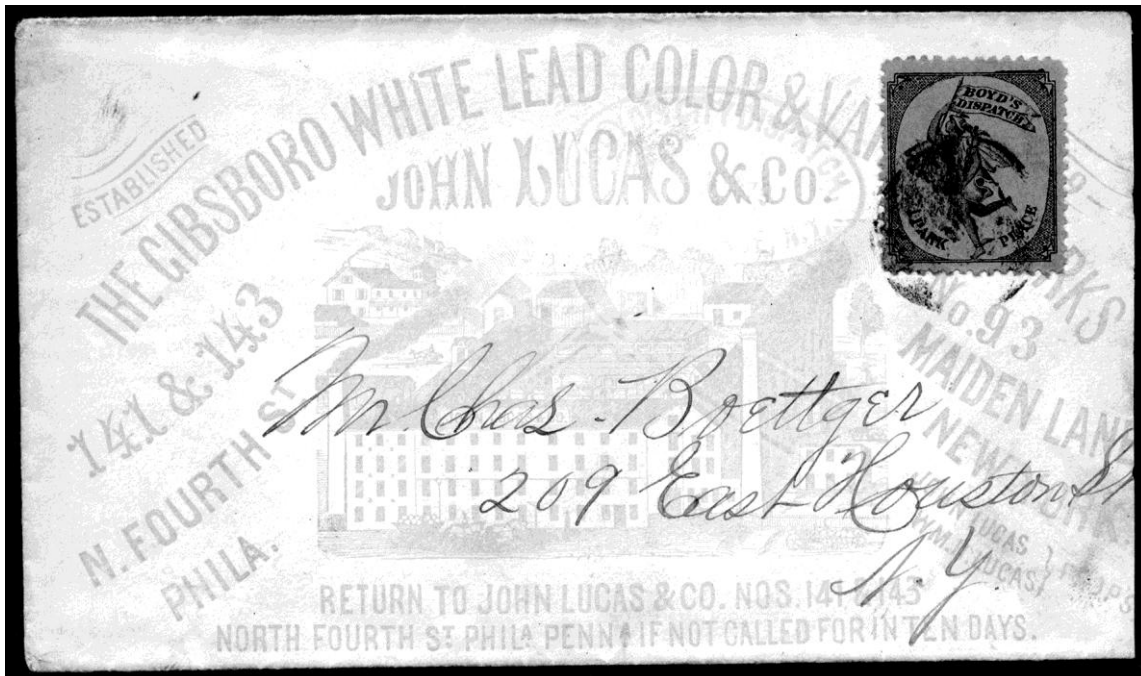 ESTABLISHED
THE GIBSBORO WHITE LEAD COLOR & VAR
RKS
JOHN LUCAS & CO.
BOYD'S
DISPATCH
PARK PLACE
141 & 143
N. FOURTH ST
PHILA.
No. 93
MAIDEN LAN
NEW YORK
LUCAS
WM. LUCAS
Mr. Chas. Boettger
209 East Houston St
N.Y.
RETURN TO JOHN LUCAS & CO. NOS. 141 & 143
NORTH FOURTH ST. PHILA PENNA IF NOT CALLED FOR IN TEN DAYS.